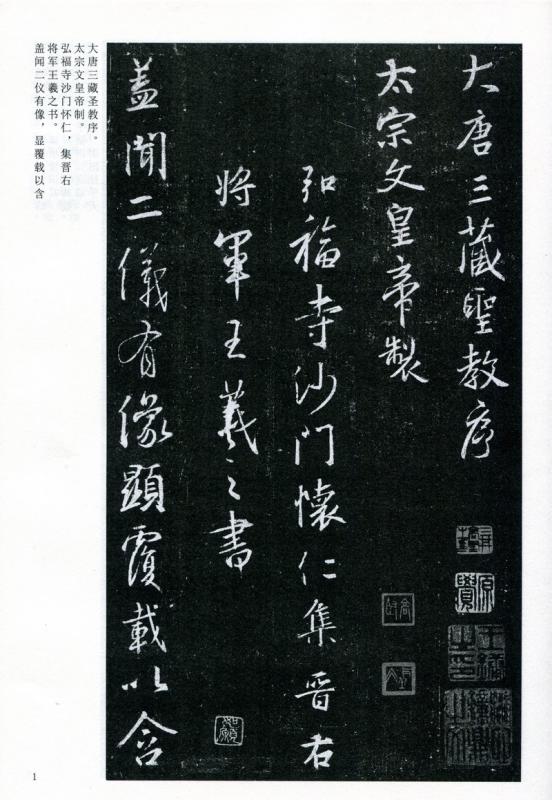 大唐三藏聖教序
太宗文皇帝製
弘福寺沙門懷仁集晉右
將軍王羲之書
盖聞二儀有像顯覆載以含
大唐三藏圣教序。
太宗文皇帝制。
弘福寺沙门怀仁，集晋右
将军王羲之书。
盖闻二仪有像，显覆载以含
1